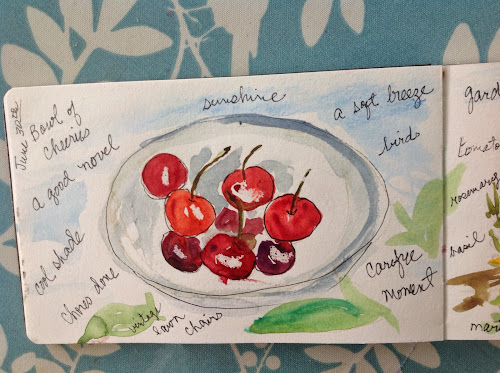 June 30th
Bowl of
Cherries
a good novel
cool shade
Chores done
vintage
lawn
chairs
sunshine
a soft breeze
birds
Carefree
moment
gard
tomato
rosemary
basil
mari